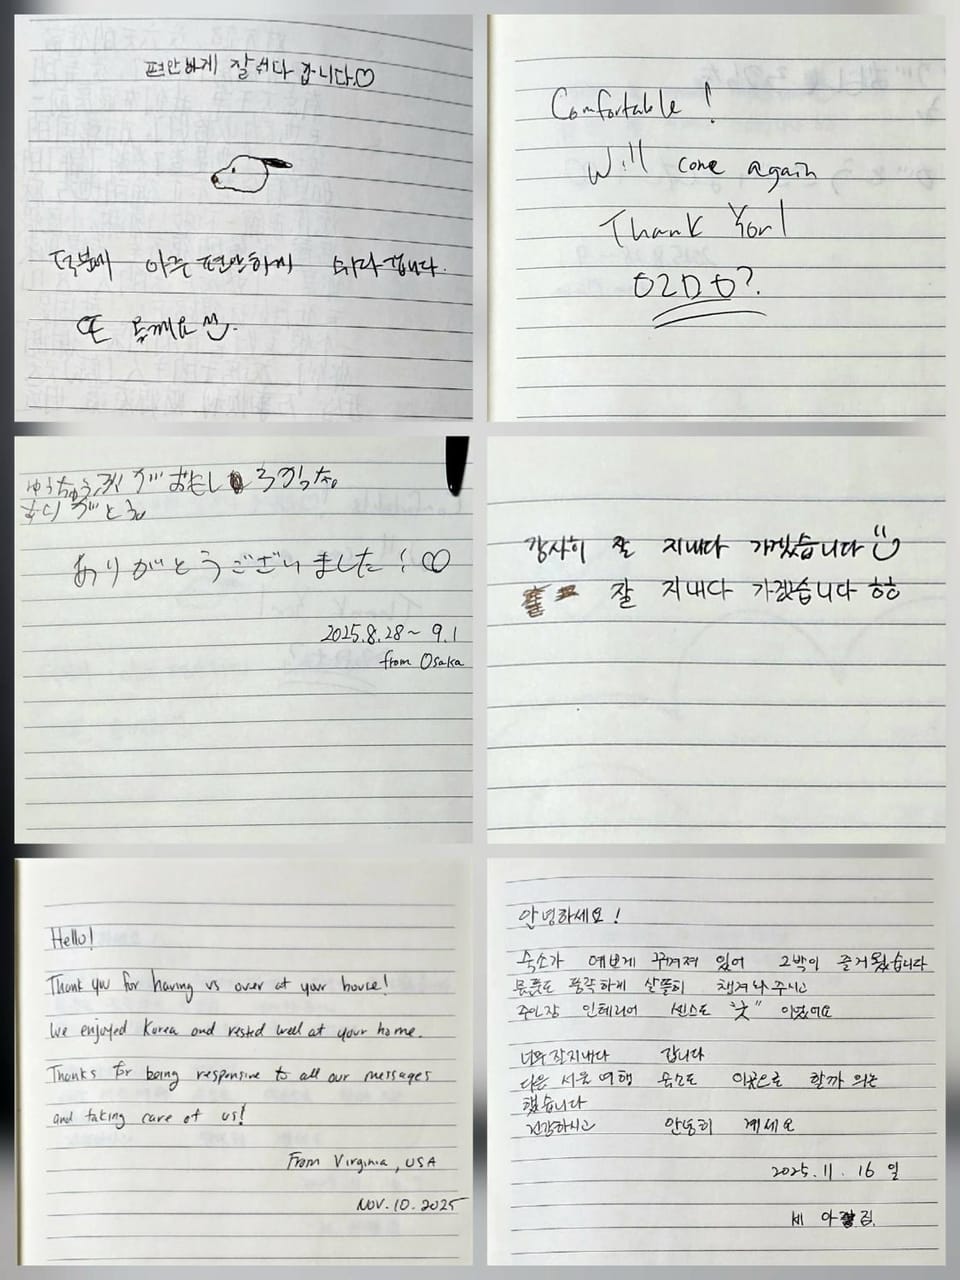 편안하게 잘쉬다 갑니다♡
덕분에 아주 편안하게 쉬다 갑니다.
또 올께요
Comfortable !
Will come again
Thank You!
ゆうちゅうぶ がおもしろかった。
ありがとう
ありがとうございました!♡
2025.8.28~ 9.1
from Osaka
감사히 잘 지내다 가겠습니다
잘 지내다 가겠습니다 ㅎㅎ
Hello!
Thank you for having us over at your house!
We enjoyed Korea and rested well at your home.
Thanks for being responsive to all our messages
and taking care of us!
From Virginia, USA
Nov. 10. 2025
안녕하세요!
숙소가 예쁘게 꾸며져 있어 2박이 즐거웠습니다
물품도 풍락하게 살뜰히 챙겨놔주시고
주인장 인테리어 센스도 "굿" 이었어요
너무 잘지내다 갑니다
다음 서울 여행 숙소도 이곳으로 할까 의논
했습니다
건강하시고 안녕히 계세요
2025. 11. 16 일